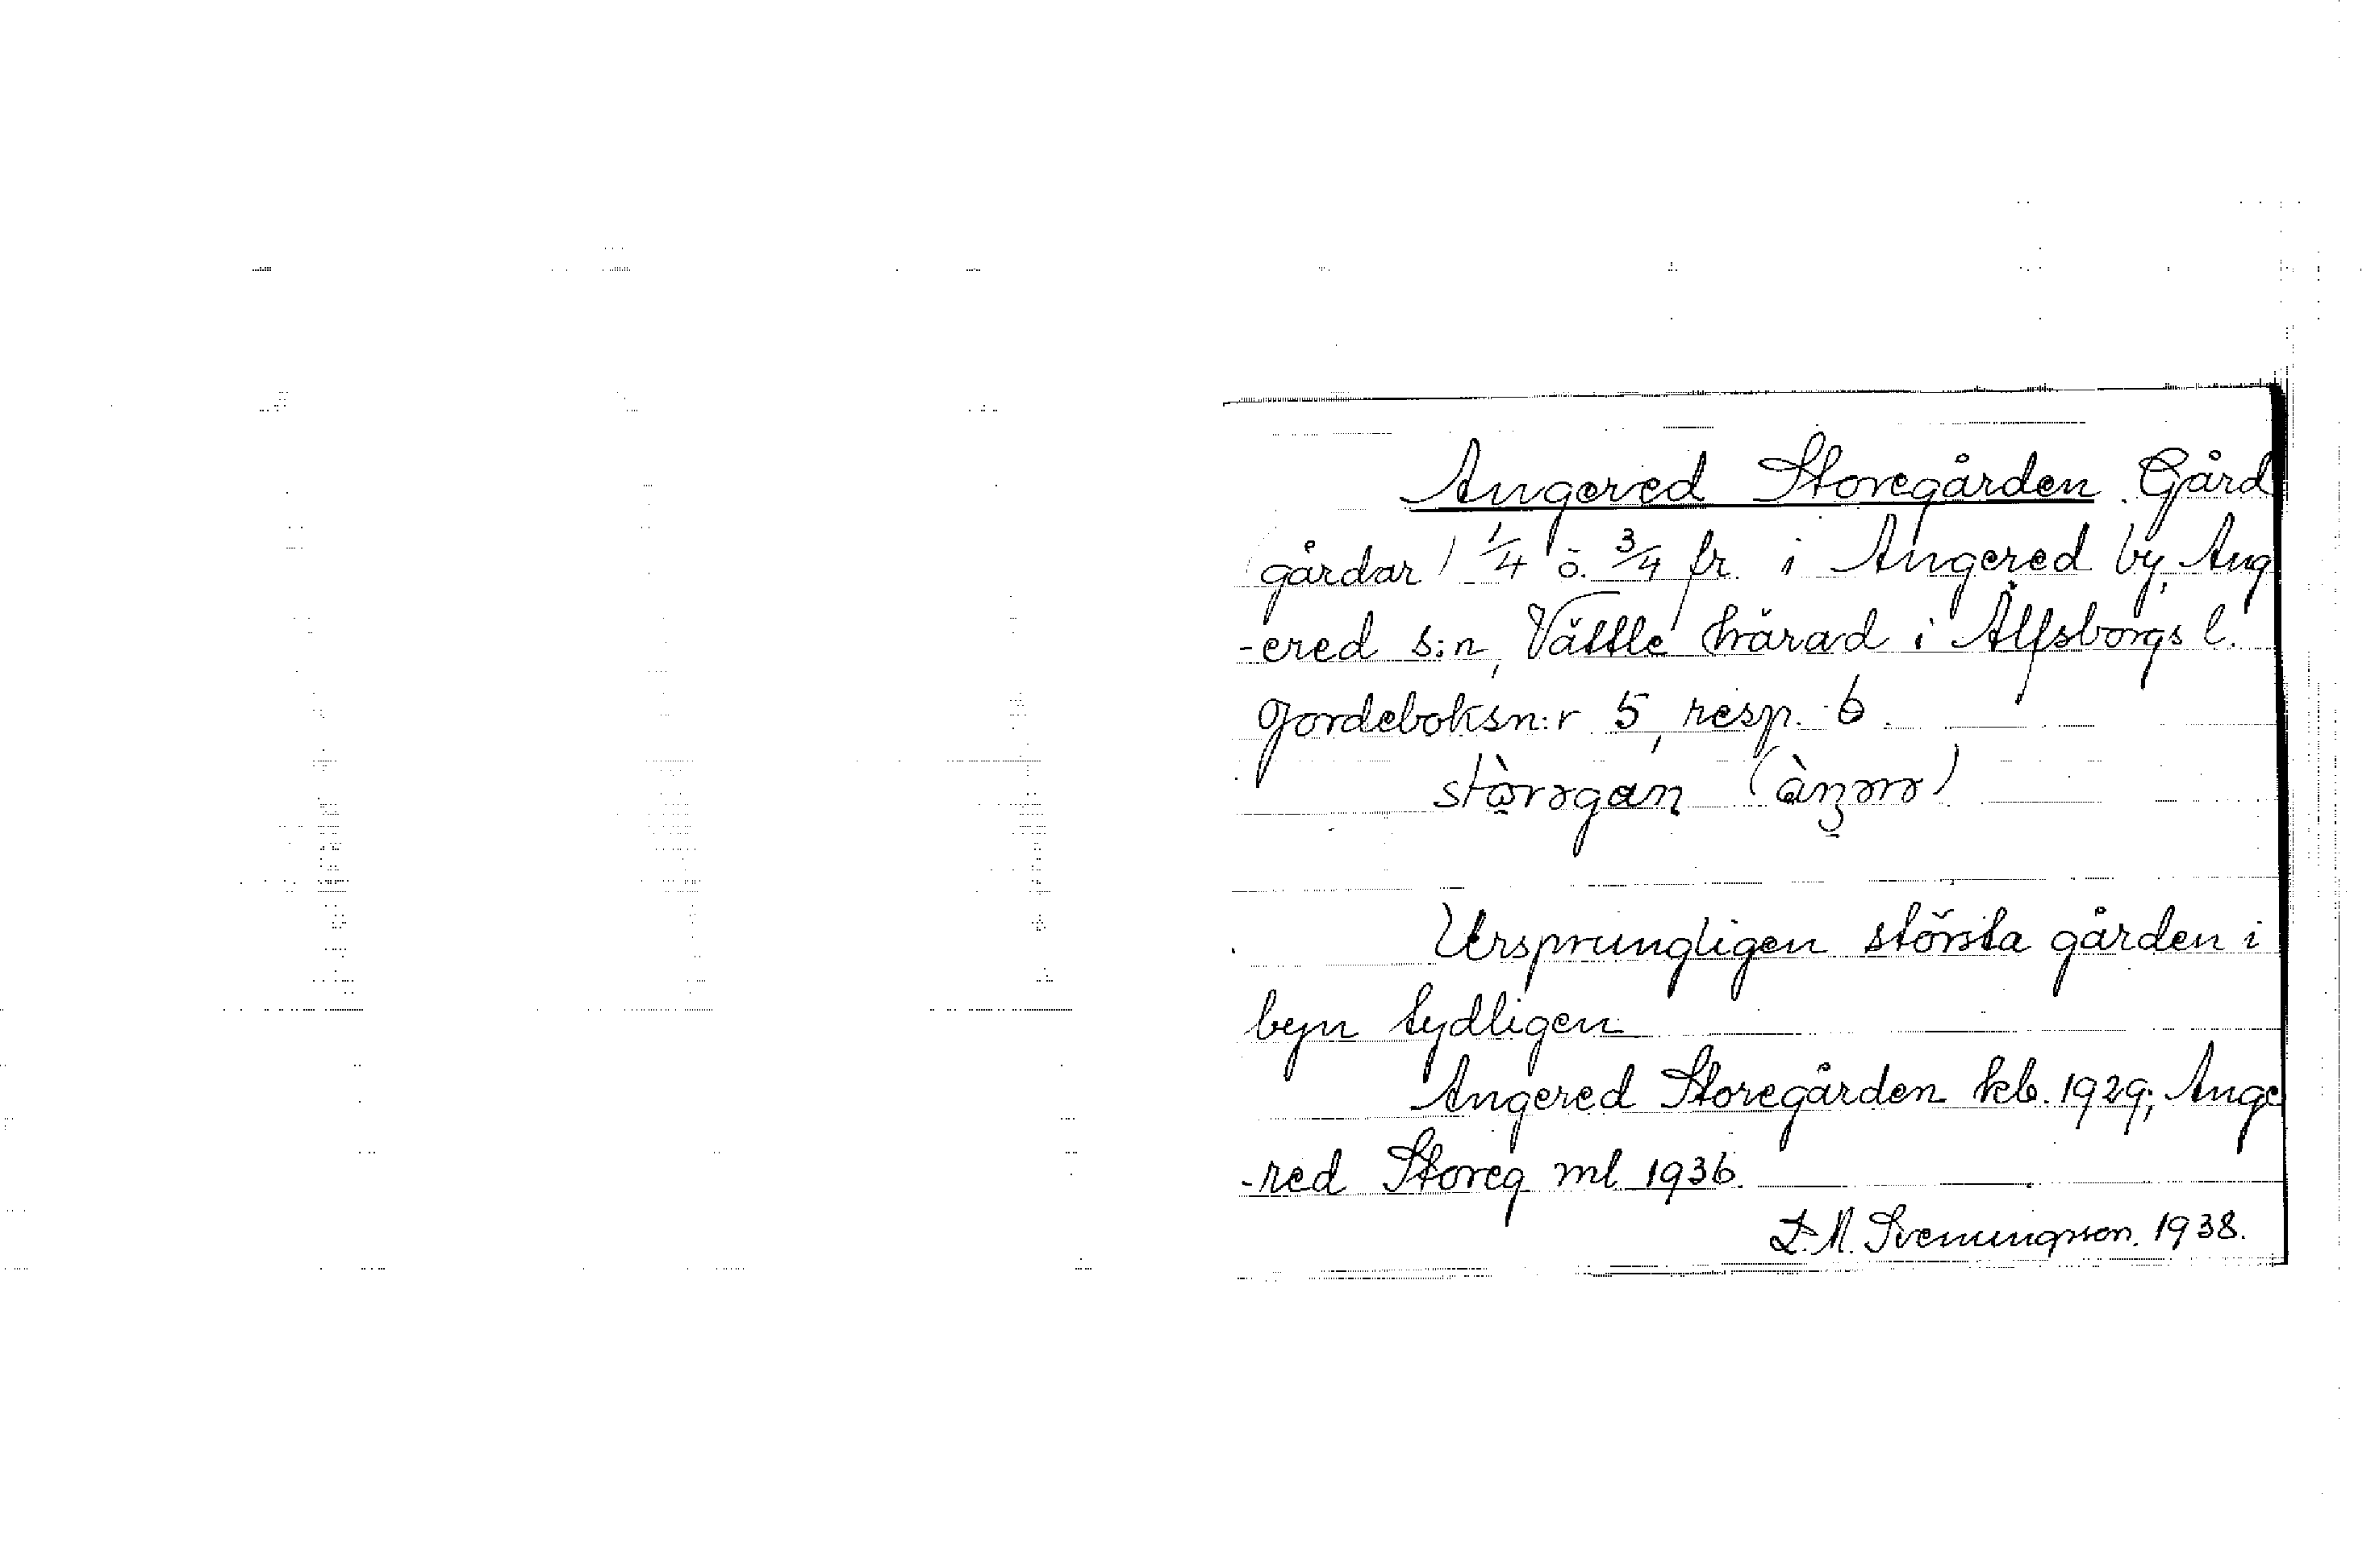 Angered Storegården. Gård
(gårdar) 1/4 o. 3/4 fr. i Angered by, Ang
-ered s:n, Vättle härad i Älfsborgs l.
Jordeboksn:r 5, resp. 6.
Ursprungligen största gården i
byn tydligen
Angered Storegården kb. 1929; Ange
-red Storeg ml 1936.
D.M. Svenungsson. 1938.